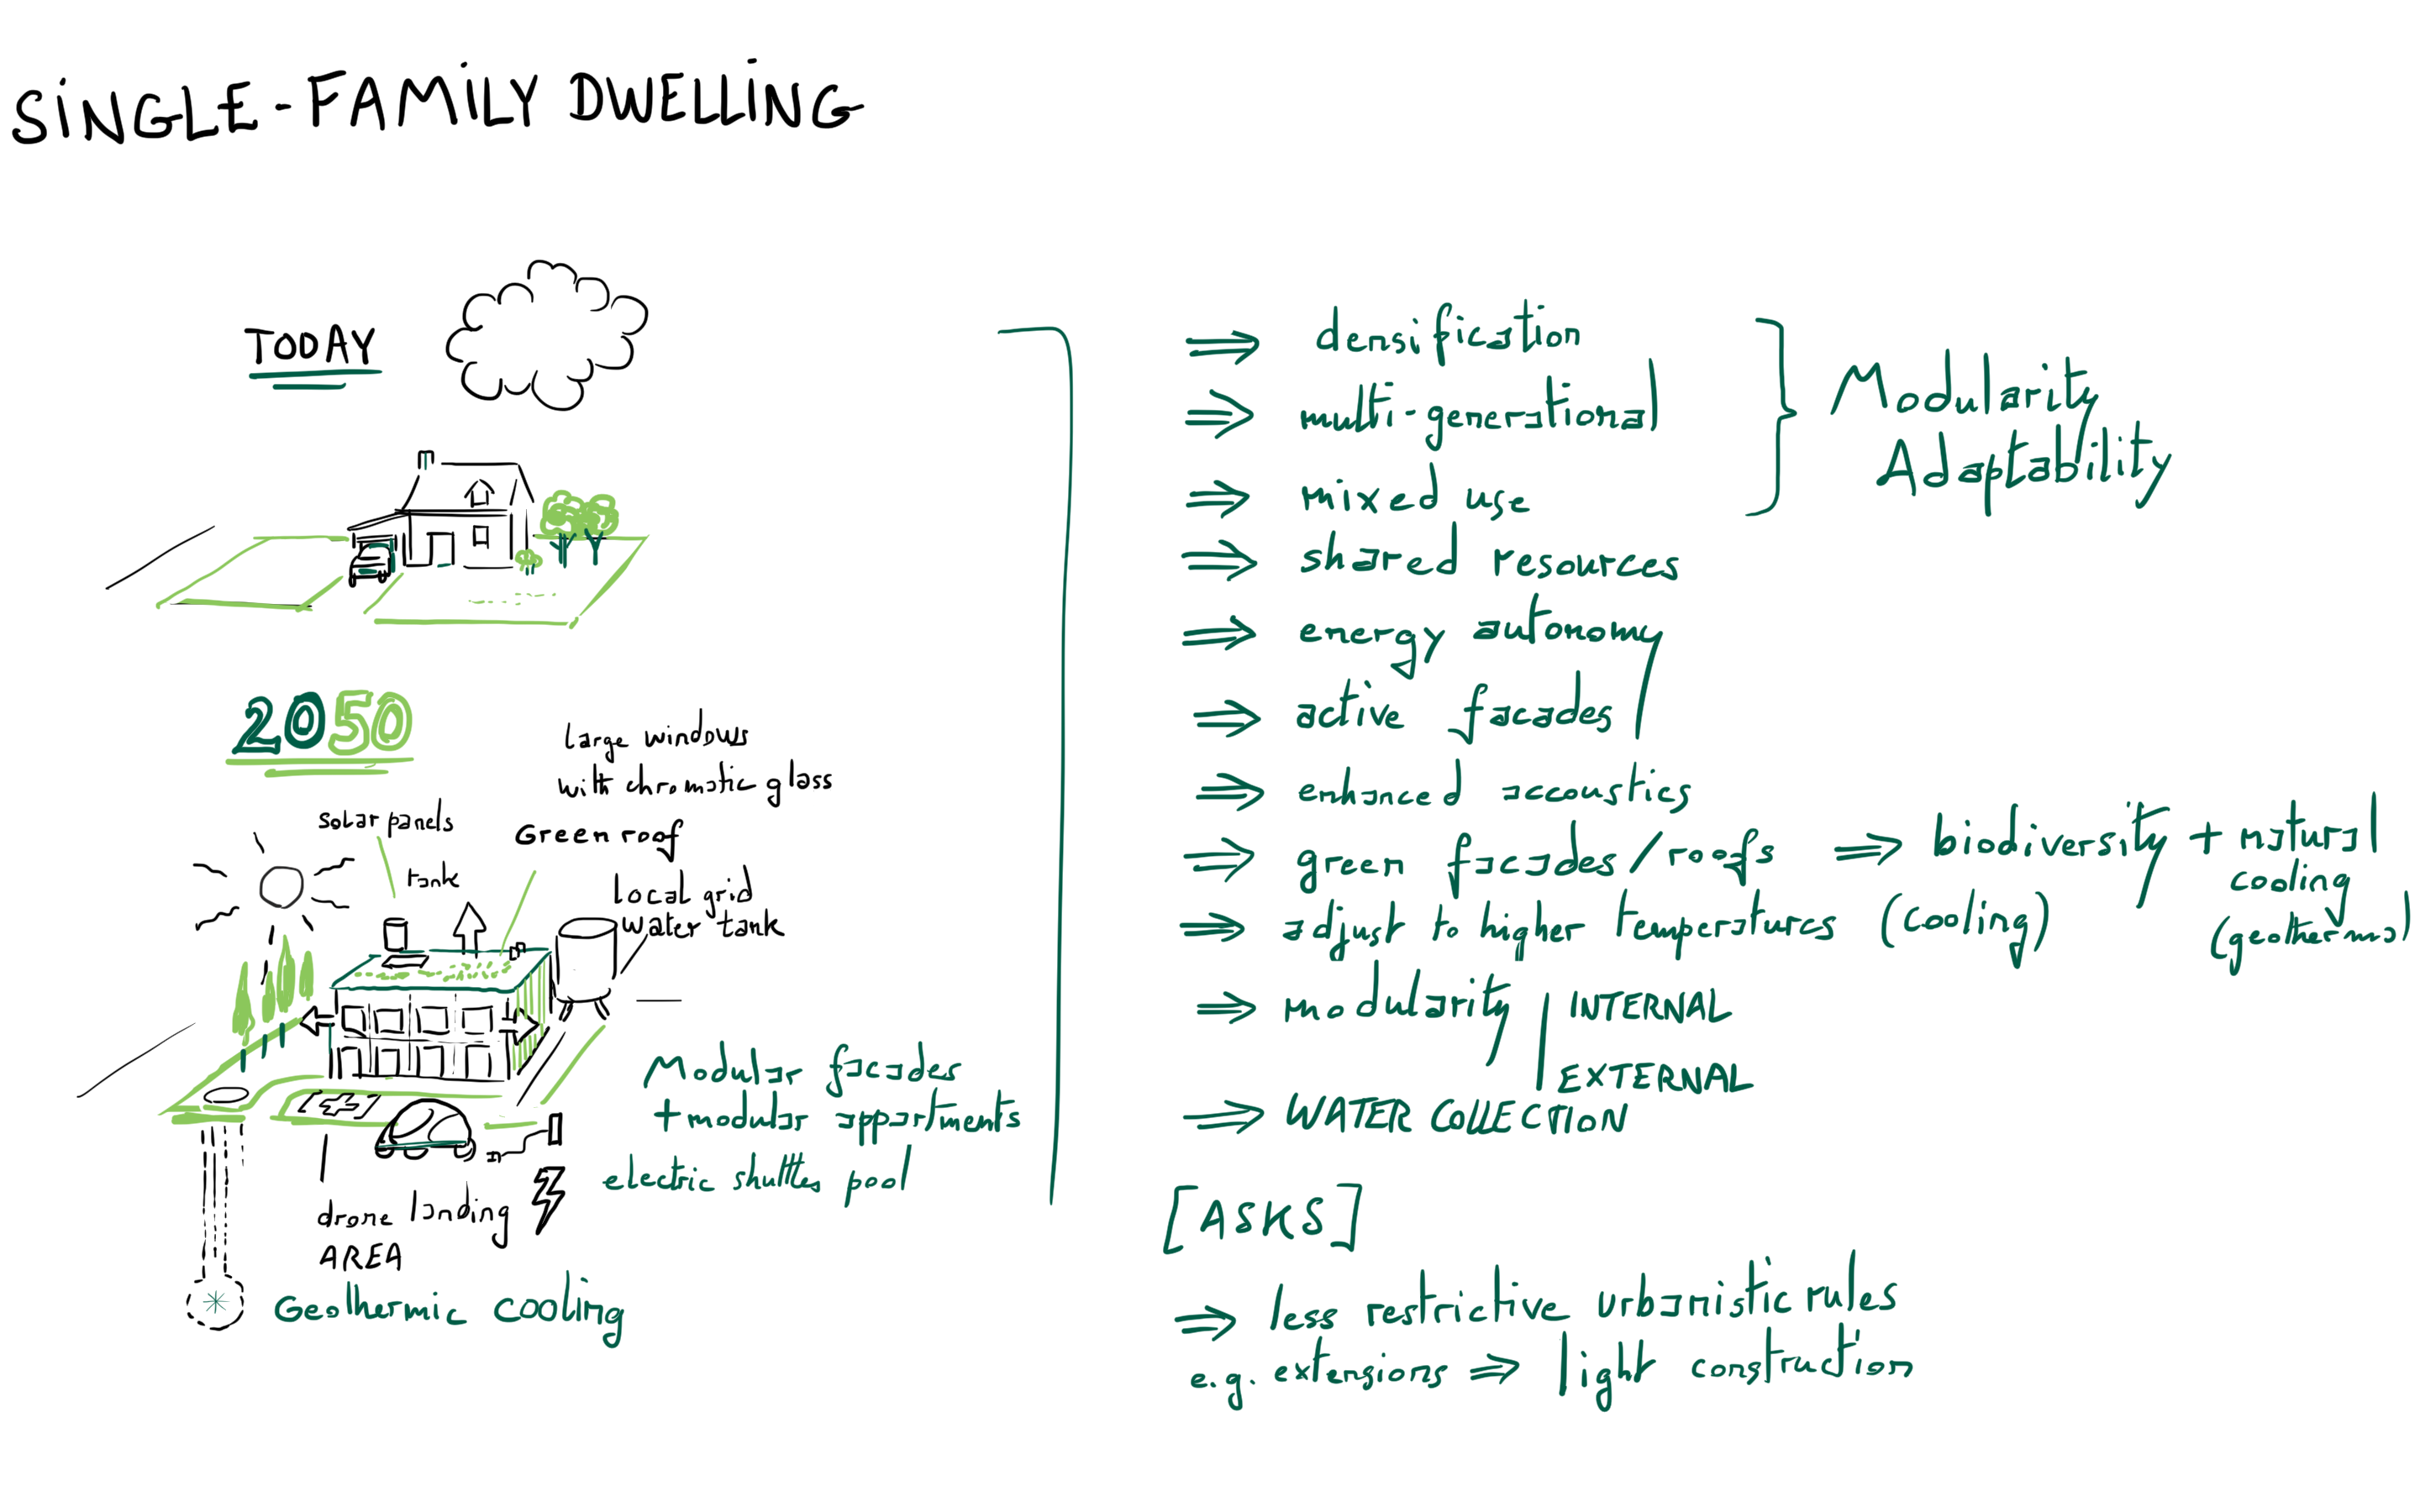 SiNGLE-FAMiLY DWELLiNG
TODAY
2050
large windows
with chromatic glass
solar panels
Green roof
tank
local grid
water tank
Modular facades
+ modular appartments
electric shuttles pool
drone landing
AREA
Geothermic cooling
⇒ densification
⇒ multi-generational
⇒ mixed use
Modularity
Adaptability
⇒ shared resources
⇒ energy autonomy
⇒ active facades
⇒ enhanced accoustics
⇒ green facades/roofs ⇒ biodiversity + natural
cooling
(geothermal)
⇒ adjust to higher temperatures (cooling)
⇒ modularity INTERNAL
EXTERNAL
⇒ WATER COLLECTION
[ASKS]
⇒ less restrictive urbanistic rules
e.g. extensions ⇒ light construction